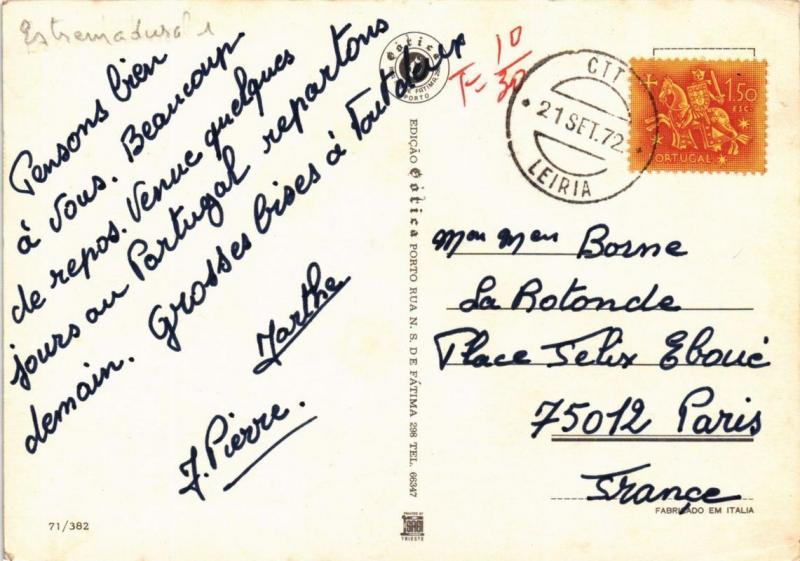 Estremadura 1
Pensons bien
à vous. Beaucoup
de repos. Venue quelques
jours au Portugal repartons
demain. Grosses bises à Tout deux
Marthe
J. Pierre.
71/382
Gótica
FÁTIMA 298
PORTO
EDIÇÃO Gótica PORTO RUA N. S. DE FÁTIMA 298 TEL. 66347
PRINTED BY
SABI
TRIESTE
T= 10/30
CTT
21 SET. 72
LEIRIA
1$50
ESC.
PORTUGAL
Borne
La Rotonde
Place Félix Eboué
75012 Paris
France
FABRICADO EM ITALIA